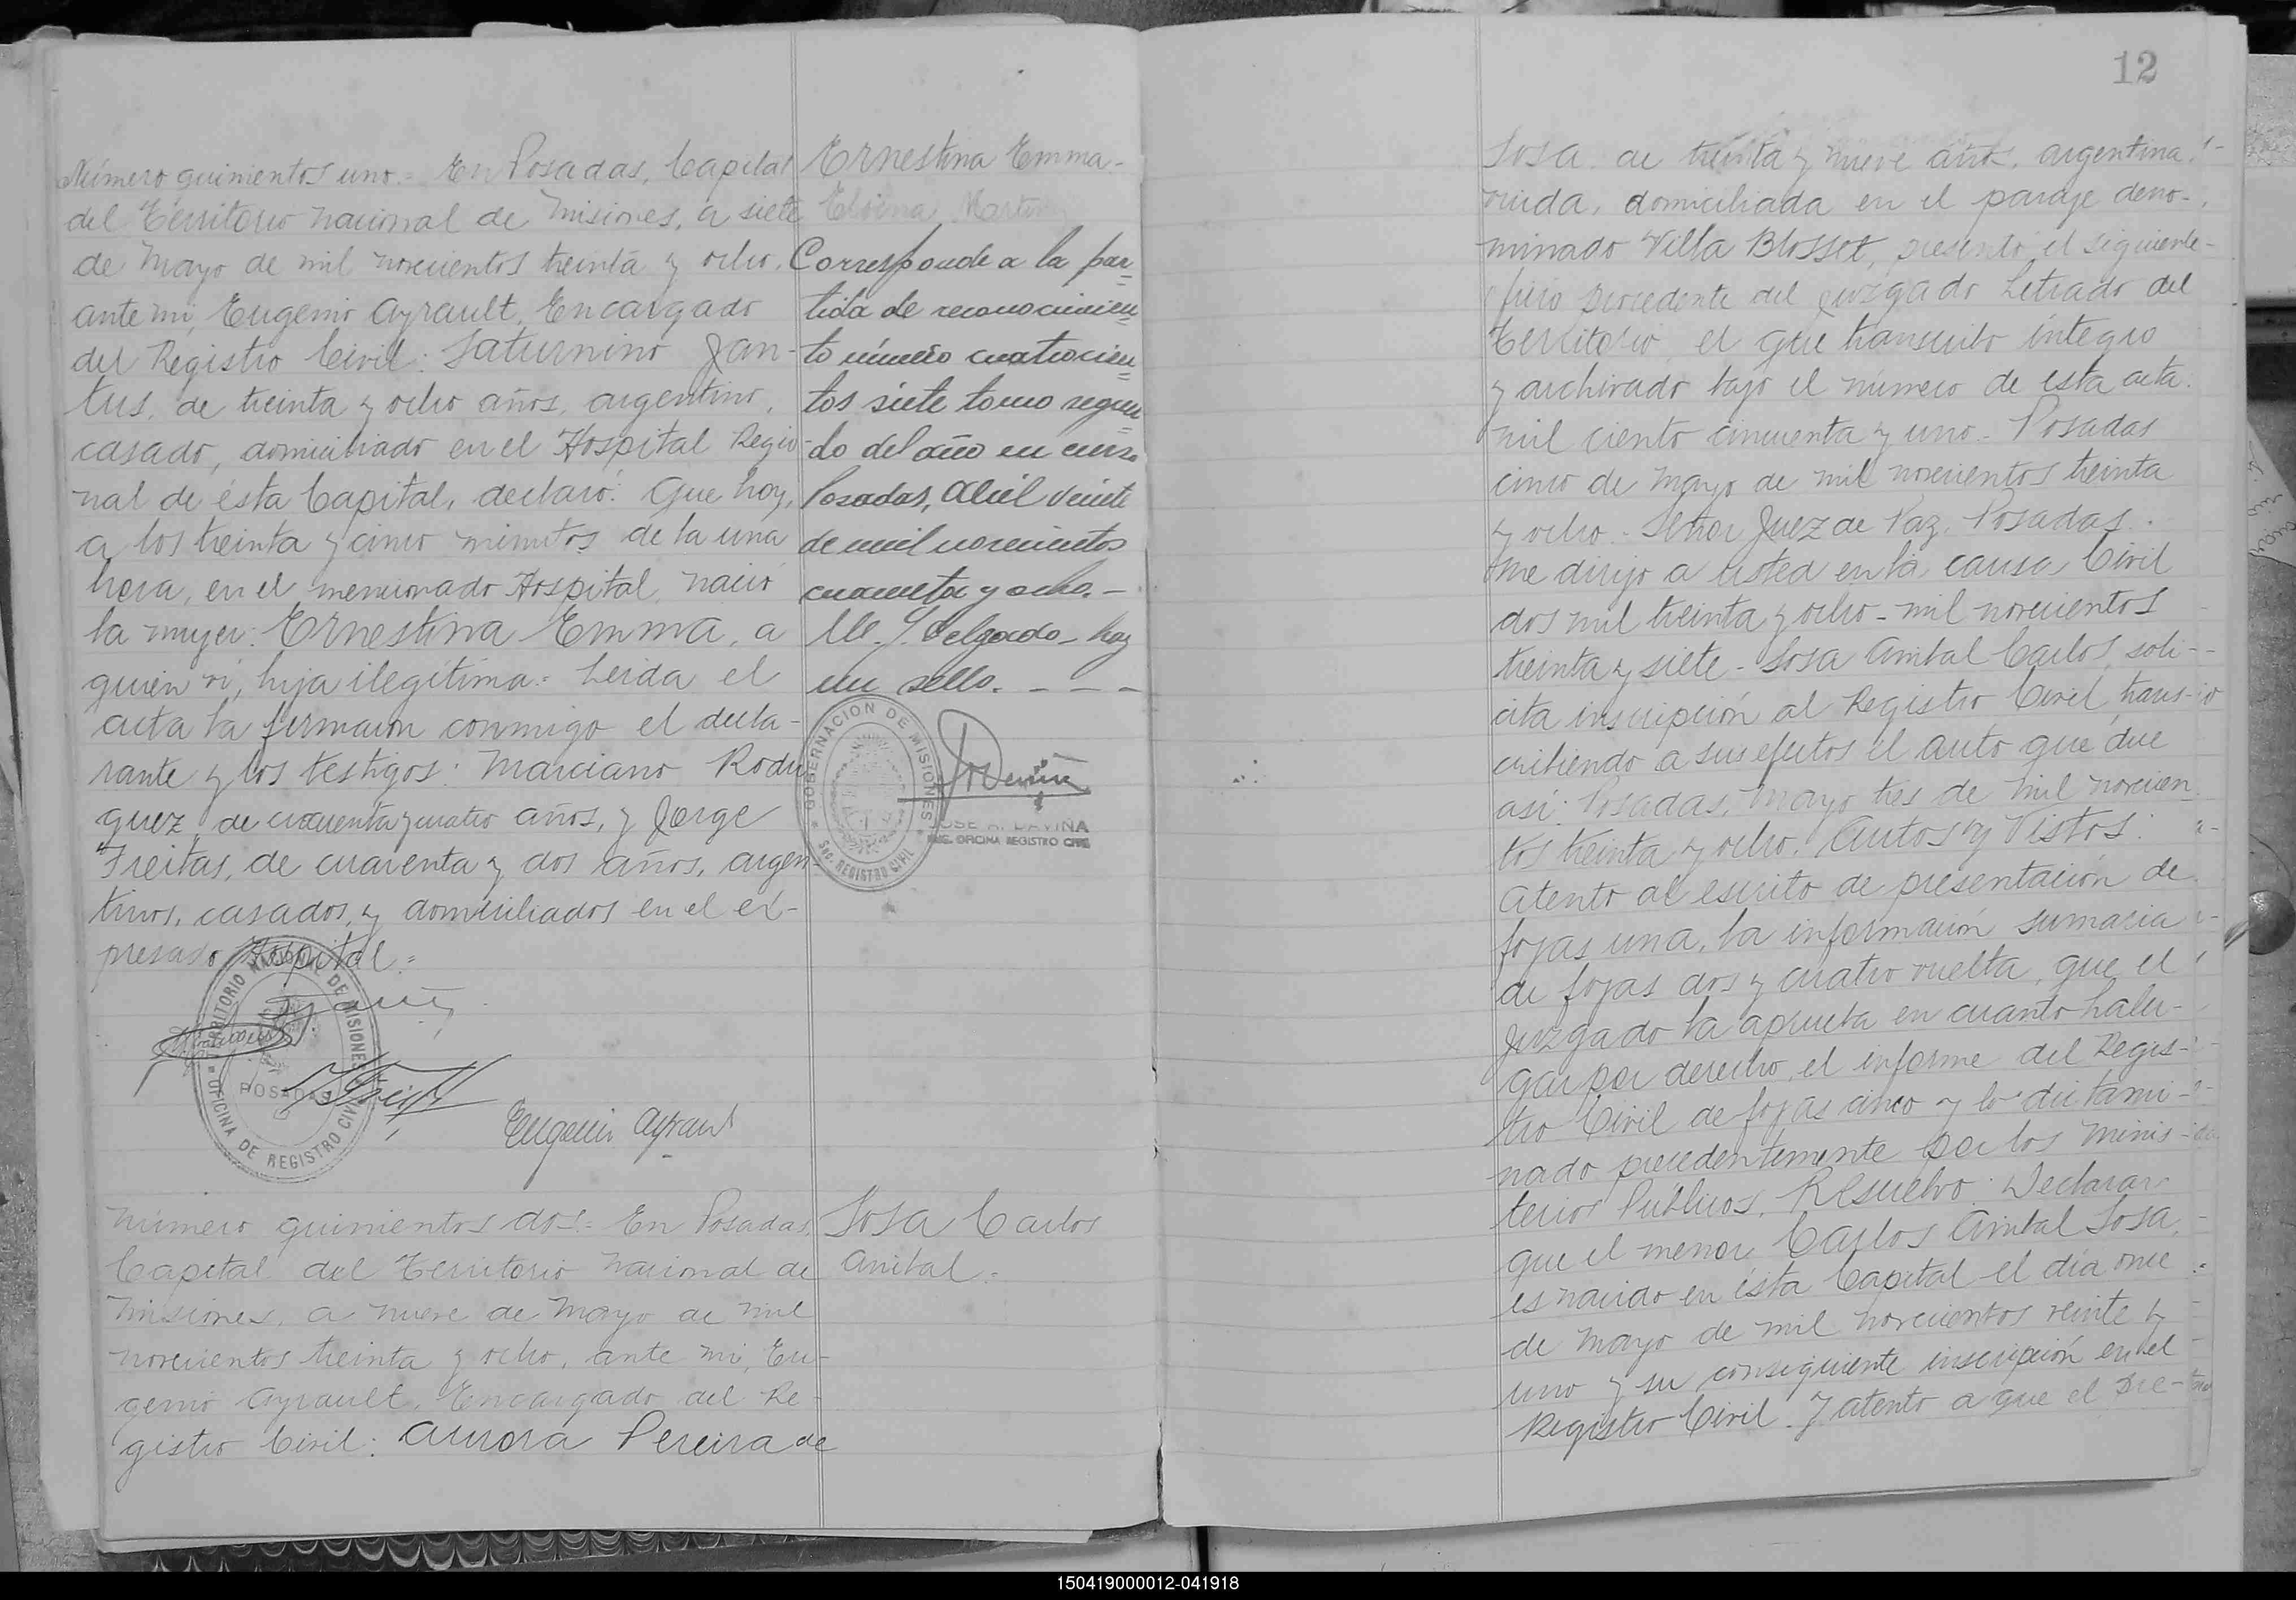 Número quinientos uno.= En Posadas, Capital
del Territorio Nacional de Misiones, a siete
de Mayo de mil novecientos treinta y ocho,
ante mi, Eugenio Ayrault, Encargado
del Registro Civil: Saturnino Jan-
tus, de treinta y ocho años, argentino,
casado, domiciliado en el Hospital Regio-
nal de ésta Capital, declaró: Que hoy,
a los treinta y cinco minutos de la una
hora, en el mencionado Hospital, nació
la mujer: Ernestina Emma, a
quien ví, hija ilegítima.= Leída el
acta la firmaron conmigo el decla-
rante y los testigos: Marciano Rodri
guez, de cuarenta y cuatro años, y Jorge
Freitas, de cuarenta y dos años, argen-
tinos, casados, y domiciliados en el ex-
presado Hospital.=
TERRITORIO NACIONAL DE MISIONES
POSADAS
OFICINA DE REGISTRO CIVIL
Eugenio Ayrault
Ernestina Emma-
Elvina Martin
Corresponde a la par
tida de reconocimien
to número cuatrocien
tos siete tomo segun
do del año en curso
Posadas, Abril veinte
de mil novecientos
cuarenta y ocho.-
M. J. Delgado- hay
un sello. - - -
GOBERNACION DE MISIONES
Sec. REGISTRO CIVIL
JOSE A. DAVIÑA
ENC. OFICINA REGISTRO CIVIL
Número quinientos dos.= En Posadas,
Capital del Territorio Nacional de
Misiones, a nueve de Mayo de mil
novecientos treinta y ocho, ante mi, Eu-
genio Ayrault, Encargado del Re-
gistro Civil: Aurora Pereira de
Sosa Carlos
Anibal.=
12
Sosa de treinta y nueve años, argentina,
viuda, domiciliada en el paraje deno-
minado Villa Blosset, presentó el siguiente
oficio procedente del Juzgado Letrado del
Territorio, el que transcribo íntegro
y archivado bajo el número de esta acta.
mil ciento cincuenta y uno- Posadas
cinco de Mayo de mil novecientos treinta
y ocho.- Señor Juez de Paz. Posadas.
Me dirijo a usted en la causa Civil
dos mil treinta y ocho- mil novecientos
treinta y siete- Sosa Anibal Carlos, soli-
cita inscripción al Registro Civil, trans-
cribiendo a sus efectos el auto que dice
así: Posadas, Mayo tres de mil novecien-
tos treinta y ocho. Autos y Vistos:
Atento al escrito de presentación de
fojas una, la información sumaria
de fojas dos y cuatro vuelta, que el
Juzgado la aprueba en cuanto haber-
gar por derecho, el informe del Regis-
tro Civil de fojas cinco y lo dictami-
nado precedentemente por los Minis-
terios Públicos, Resuelvo: Declarar
que el menor Carlos Anibal Sosa,
es nacido en ésta Capital el día once
de Mayo de mil novecientos veinte y
uno y su consiguiente inscripción en el
Registro Civil. Y atento a que el pre-
150419000012-041918